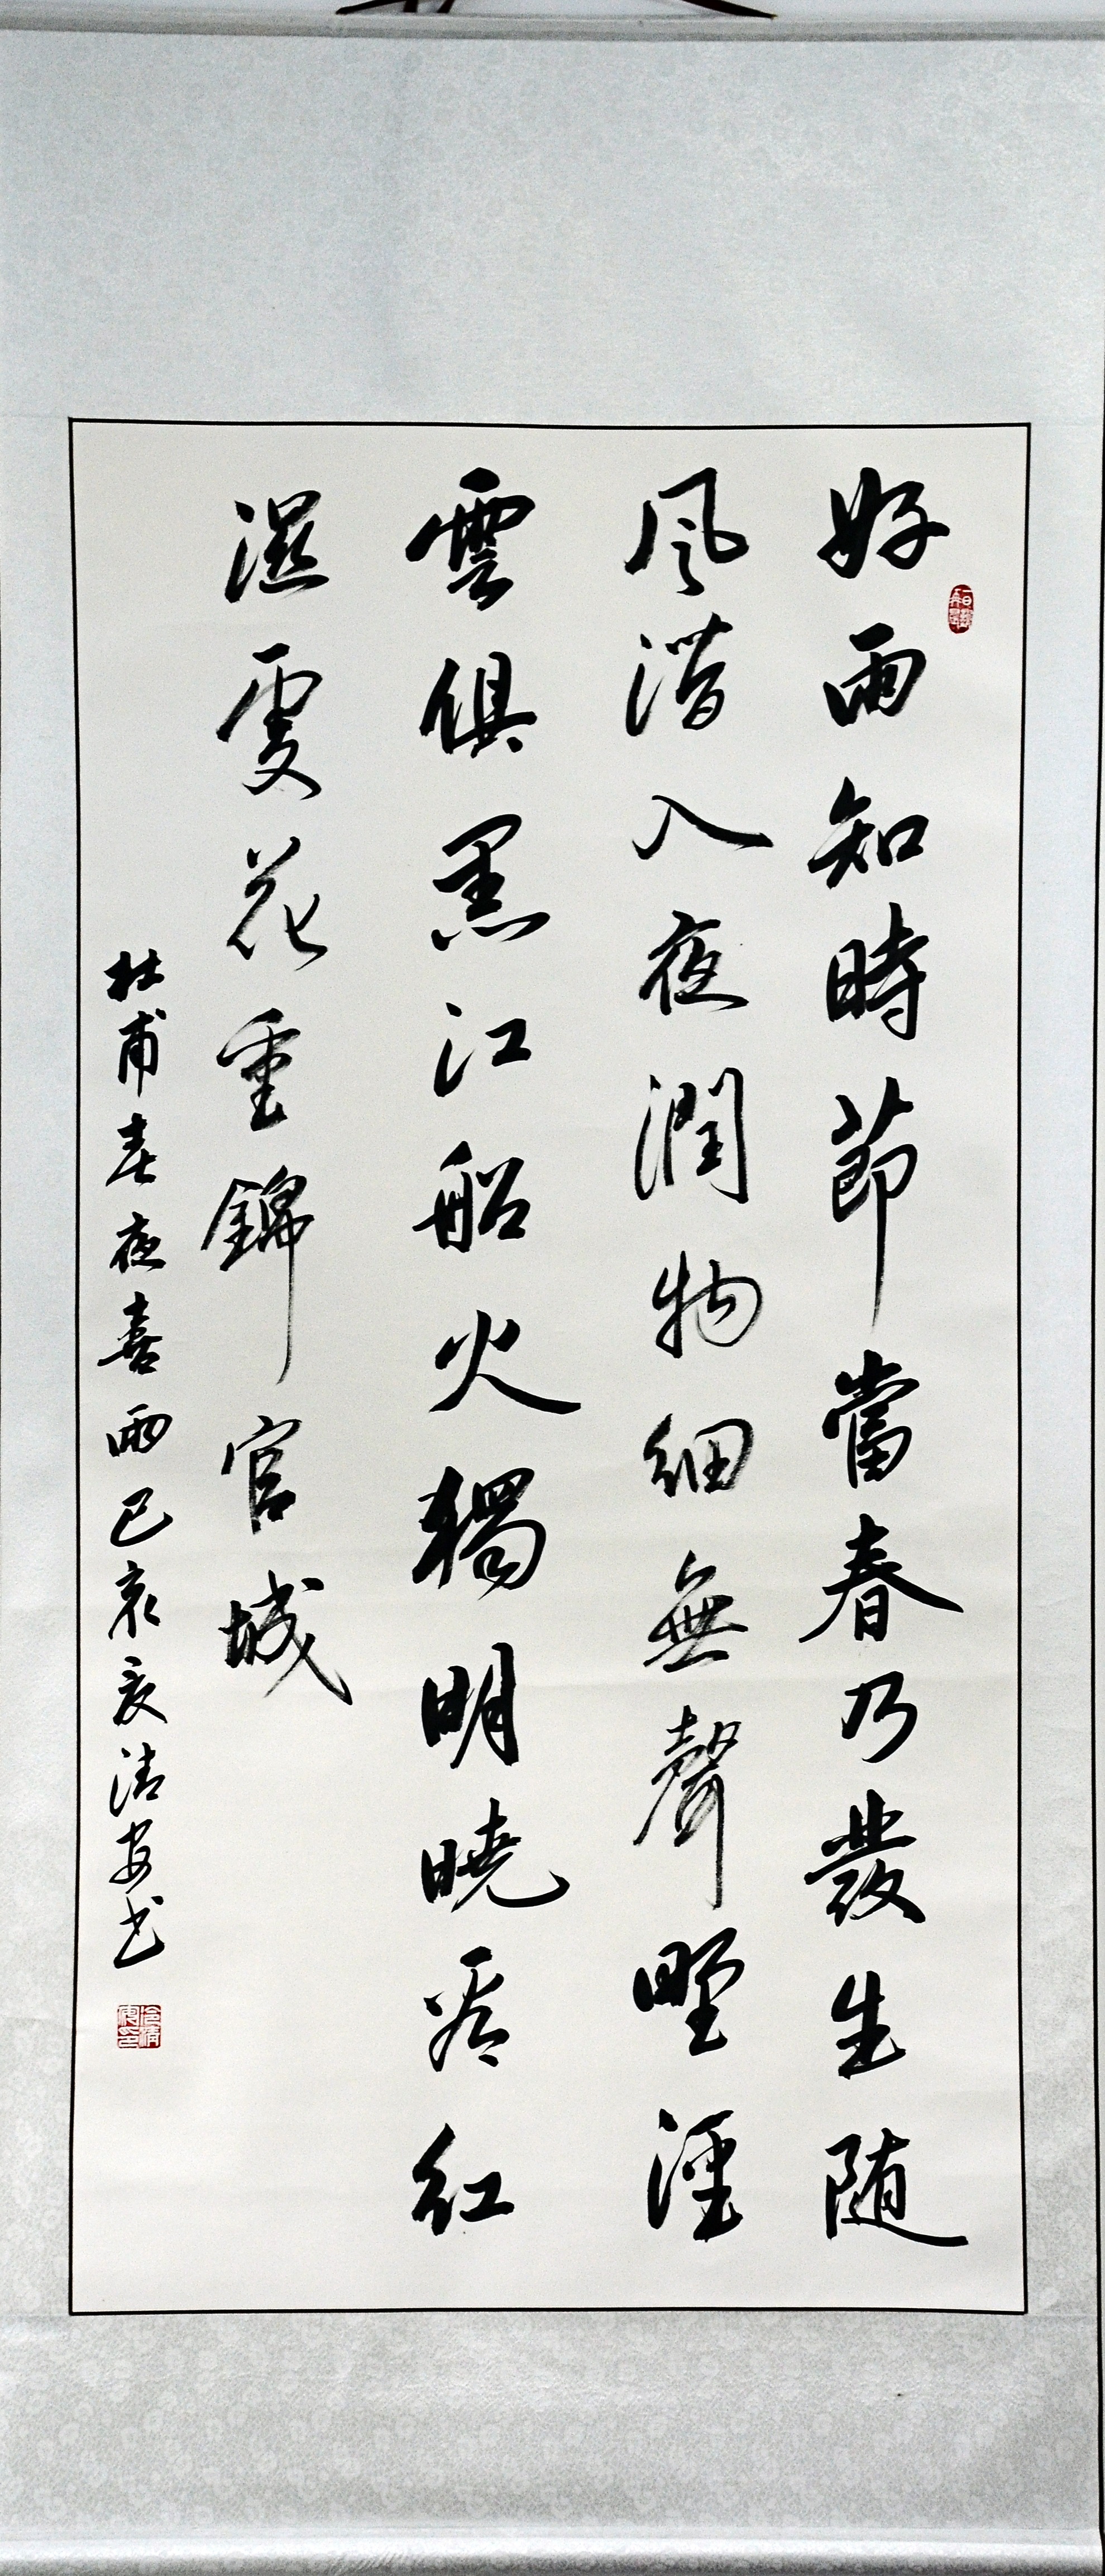 好雨知時節當春乃發生随
風潛入夜潤物細無聲野徑
雲俱黑江船火獨明曉看紅
濕處花重錦官城
杜甫春夜喜雨己亥夏清安书